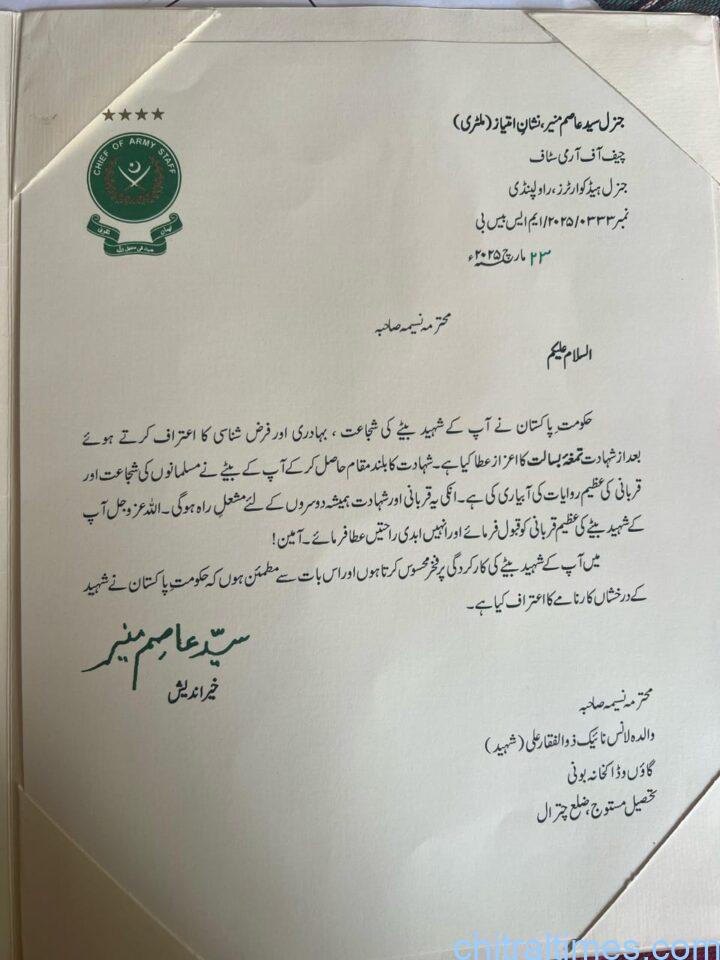 CHIEF OF ARMY STAFF
ایمان
تقویٰ
جہاد فی سبیل اللہ
جنرل سید عاصم منیر، نشانِ امتیاز (ملٹری)
چیف آف آرمی سٹاف
جنرل ہیڈ کوارٹرز، راولپنڈی
نمبر ۲۰۲۵/۰۳۳۳/ایم ایس بیس بی
۲۳ مارچ ۲۰۲۵ء
محترمہ نسیمہ صاحبہ
السلام علیکم
حکومتِ پاکستان نے آپ کے شہید بیٹے کی شجاعت ، بہادری اور فرض شناسی کا اعتراف کرتے ہوئے
بعد از شہادت تمغۂ بسالت کا اعزاز عطا کیا ہے۔ شہادت کا بلند مقام حاصل کر کے آپ کے بیٹے نے مسلمانوں کی شجاعت اور
قربانی کی عظیم روایات کی آبیاری کی ہے۔ انکی یہ قربانی اور شہادت ہمیشہ دوسروں کے لئے مشعلِ راہ ہوگی۔ اللہ عزوجل آپ
کے شہید بیٹے کی عظیم قربانی کو قبول فرمائے اور انہیں ابدی راحتیں عطا فرمائے۔ آمین!
میں آپ کے شہید بیٹے کی کارکردگی پر فخر محسوس کرتا ہوں اور اس بات سے مطمئن ہوں کہ حکومتِ پاکستان نے شہید
کے درخشاں کارنامے کا اعتراف کیا ہے۔
سیّد عاصم منیر
خیر اندیش
محترمہ نسیمہ صاحبہ
والدہ لانس نائیک ذوالفقار علی (شہید)
گاؤں و ڈاکخانہ بونی
تحصیل مستوج، ضلع چترال
chitraltimes.com